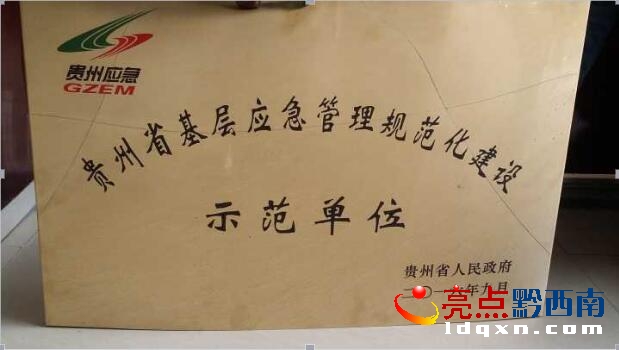 贵州应急
GZEM
贵州省基层应急管理规范化建设
示范单位
贵州省人民政府
年九月
亮点黔西南
ldqxn.com